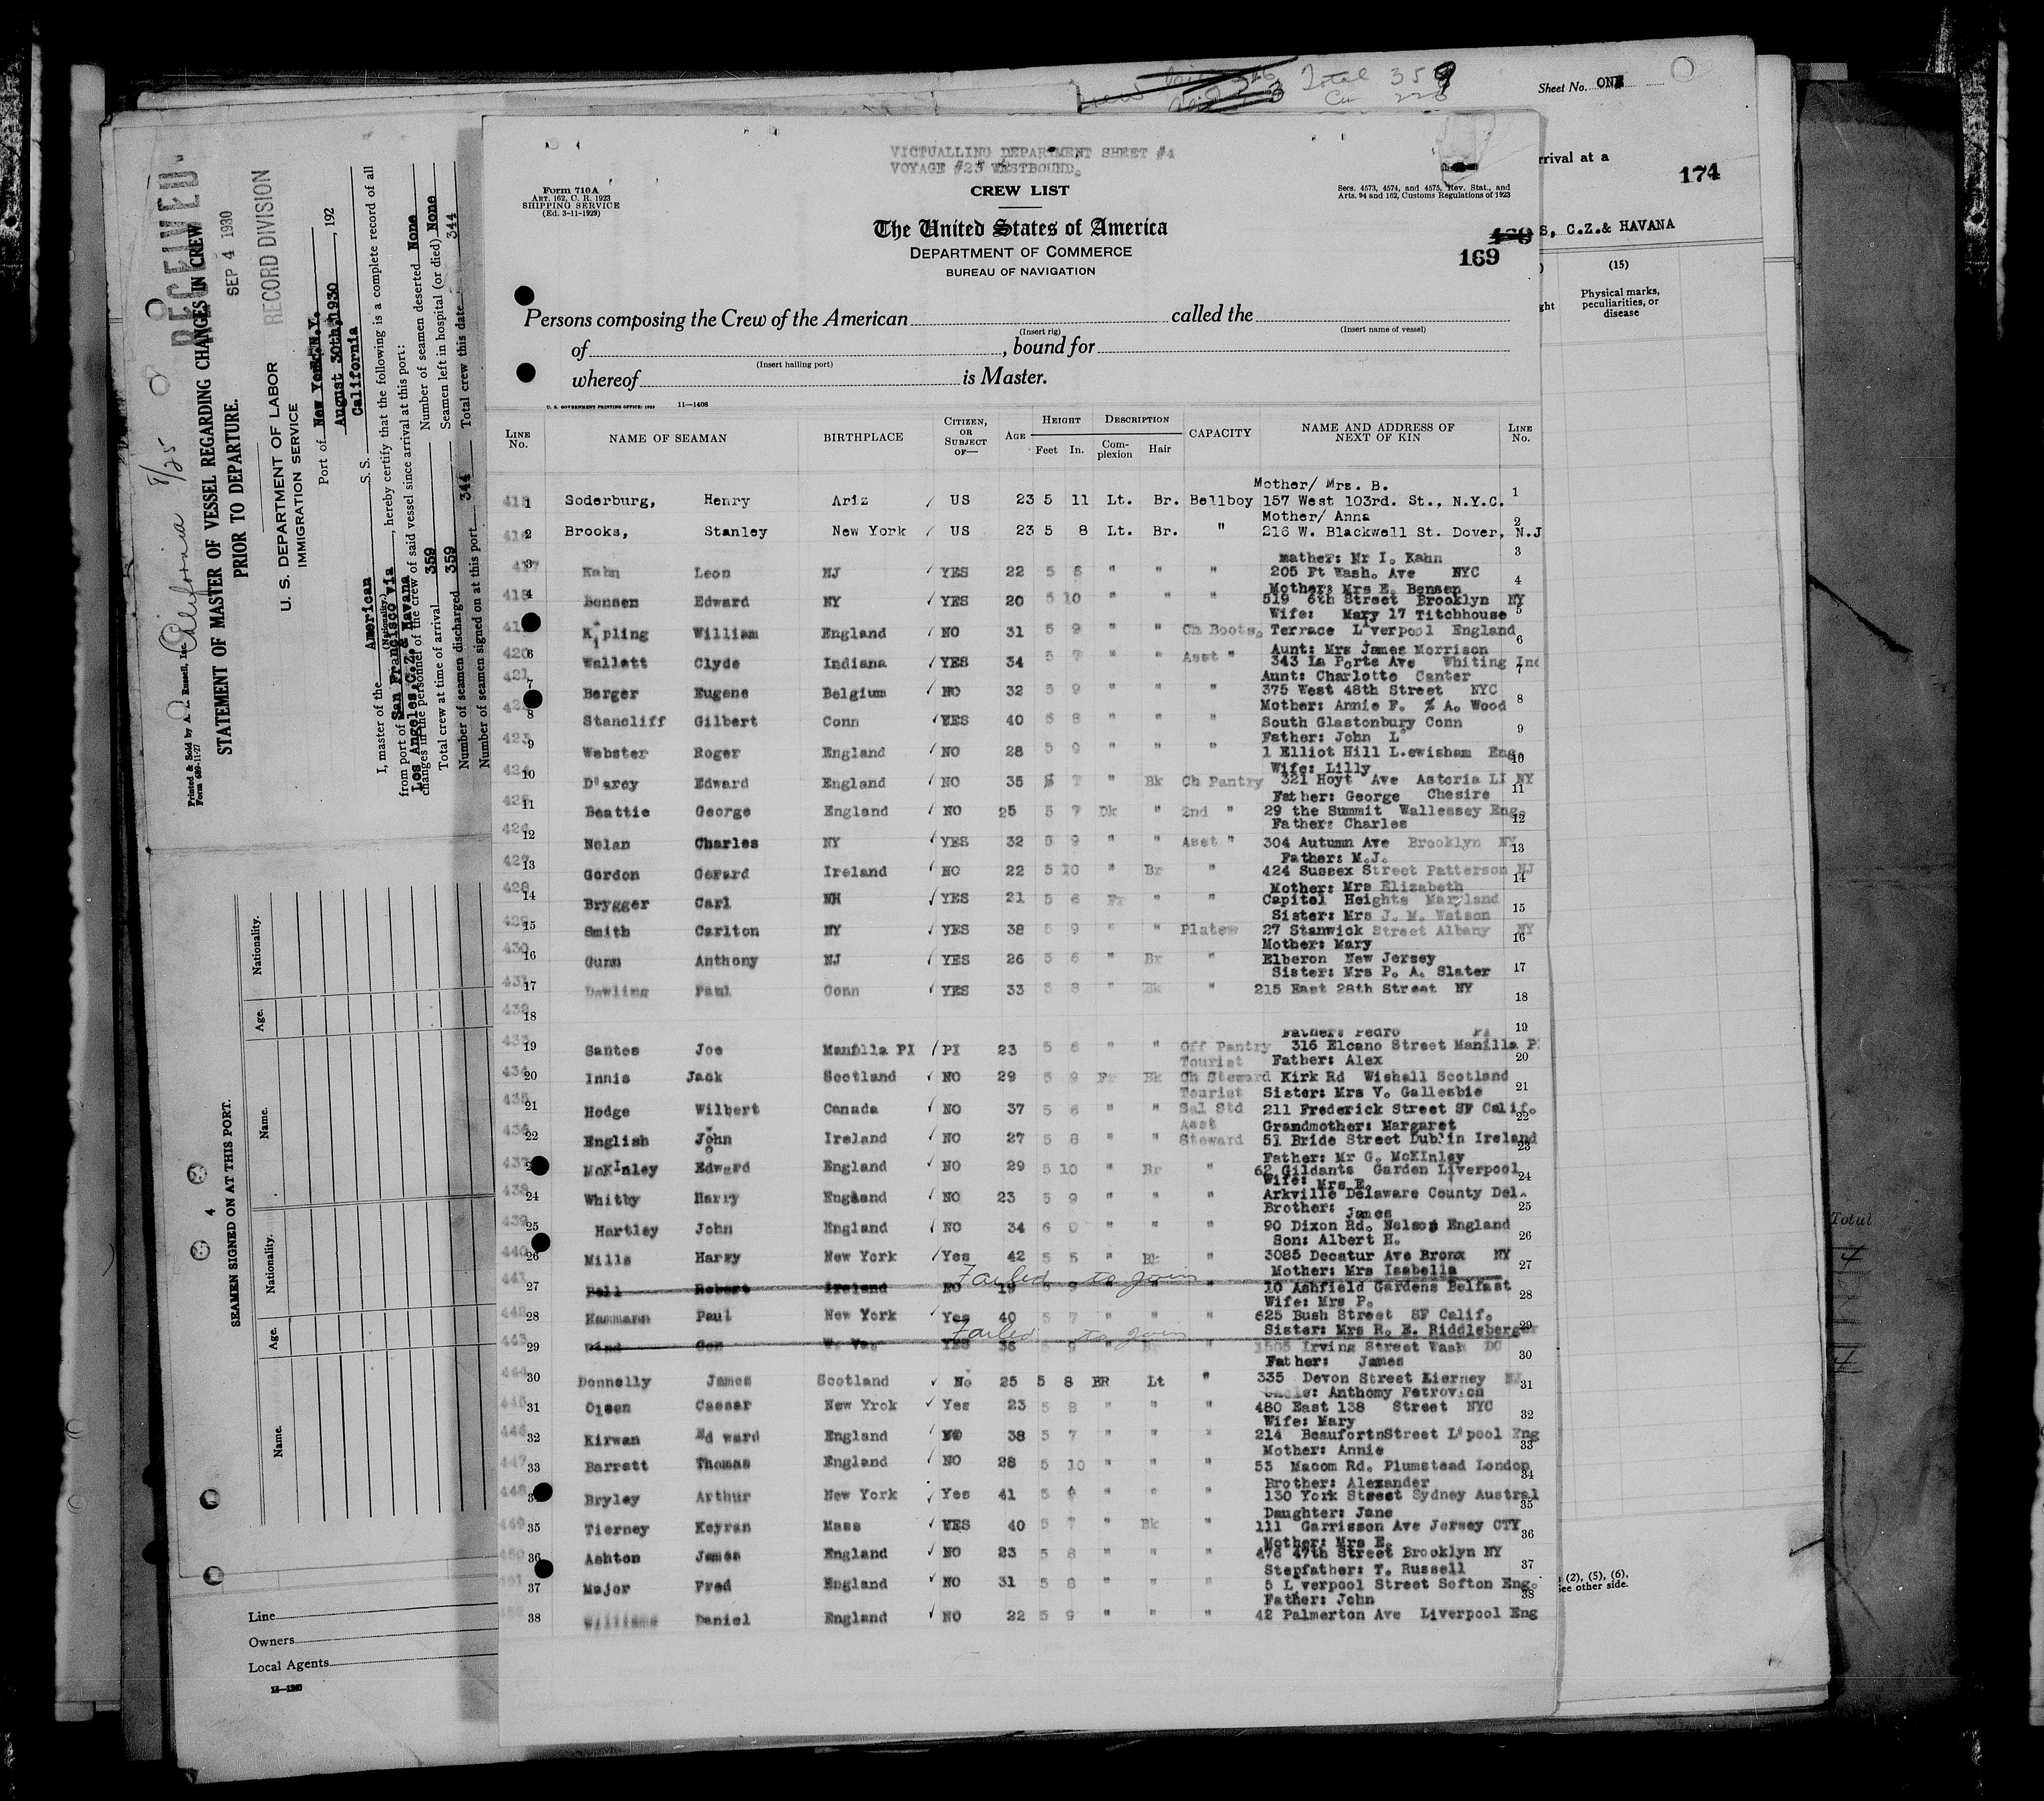 Total 359
Sheet No. ONE
rrival at a
174
S, C.Z.& HAVANA
(15)
Physical marks,
peculiarities, or
disease
VICTUALLING DEPARTMENT SHEET #4
VOYAGE #23 WESTBOUND.
Form 710 A
ART. 162, C. R. 1923
SHIPPING SERVICE
(Ed. 3-11-1929)
CREW LIST
Secs. 4573, 4574, and 4575, Rev. Stat., and
Arts. 94 and 162, Customs Regulations of 1923
The United States of America
DEPARTMENT OF COMMERCE
BUREAU OF NAVIGATION
169
Persons composing the Crew of the American called the
(Insert rig) (Insert name of vessel)
of , bound for
(Insert hailing port)
whereof is Master.
U. S. GOVERNMENT PRINTING OFFICE: 1929 11—1408
LINE No. NAME OF SEAMAN BIRTHPLACE CITIZEN, OR SUBJECT OF— AGE HEIGHT Feet In. DESCRIPTION Complexion Hair CAPACITY NAME AND ADDRESS OF NEXT OF KIN LINE No.
Mother/ Mrs. B.
1 Soderburg, Henry Ariz US 23 5 11 Lt. Br. Bellboy 157 West 103rd. St., N.Y.C. 1
Mother/ Anna
2 Brooks, Stanley New York US 23 5 8 Lt. Br. " 216 W. Blackwell St. Dover, N.J 2
mather: Mr I. Kahn
3 Kahn Leon NJ YES 22 5 8 " " " 205 Ft Wash. Ave NYC 3
Mother: Mrs E. Bensen
4 Bensen Edward NY YES 20 5 10 " " " 519 6th Street Brooklyn NY 4
Wife: Mary 17 Titchhouse
Kipling William England NO 31 5 9 " " Ch Boots. Terrace Liverpool England 5
Aunt: Mrs James Morrison
420 6 Wallett Clyde Indiana YES 34 5 7 " " Asst " 343 La Porte Ave Whiting Ind 6
Aunt: Charlotte Canter
421 7 Berger Eugene Belgium NO 32 5 9 " " " 375 West 48th Street NYC 7
Mother: Annie F. % A. Wood
8 Stancliff Gilbert Conn YES 40 5 8 " " " South Glastonbury Conn 8
Father: John L
423 9 Webster Roger England NO 28 5 9 " " " 1 Elliot Hill L.ewisham Eng. 9
Wife: Lilly
424 10 D'arcy Edward England NO 35 5 7 " Bk Ch Pantry 321 Hoyt Ave Astoria LI NY 10
Father: George Chesire
425 11 Beattie George England NO 25 5 7 Dk " 2nd " 29 the Summit Wallessey Eng. 11
Father: Charles
426 12 Nolan Charles NY YES 32 5 9 " " Asst " 304 Autumn Ave Brooklyn NY 12
Father: M.J.
427 13 Gordon Gerard Ireland NO 22 5 10 " Br " 424 Sussex Street Patterson NJ 13
Mother: Mrs Elizabeth
428 14 Brygger Carl NH YES 21 5 6 Fr " " Capitol Heights Maryland 14
Sister: Mrs J. M. Watson
429 15 Smith Carlton NY YES 38 5 9 " " Plates 27 Stanwick Street Albany NY 15
Mother: Mary
430 16 Gunn Anthony NJ YES 26 5 6 " Br " Elberon New Jersey 16
Sister: Mrs P. A. Slater
431 17 Dowling Paul Conn YES 33 5 8 " Bk " 215 East 28th Street NY 17
432 18 18
Father: Pedro PI
433 19 Santos Joe Manilla PI PI 23 5 6 " " Off Pantry 316 Elcano Street Manilla P. 19
Tourist Father: Alex
434 20 Innis Jack Scotland NO 29 5 9 Fr Bk Ch Steward Kirk Rd Wishall Scotland 20
Tourist Sister: Mrs V. Gallesbie
435 21 Hodge Wilbert Canada NO 37 5 6 " " Sal Std 211 Frederick Street SF Calif. 21
Asst Grandmother: Margaret
436 22 English John Ireland NO 27 5 8 " " Steward 51 Bride Street Dublin Ireland 22
Father: Mr G. McKInley
437 McKInley Edward England NO 29 5 10 " Br " 62 Gildants Garden Liverpool 23
Wife: Mrs E.
438 24 Whitby Harry England NO 23 5 9 " " " Arkville Delaware County Del. 24
Brother: James
439 25 Hartley John England NO 34 6 0 " " " 90 Dixon Rd. Nelson England 25
Son: Albert H.
440 26 Mills Harry New York Yes 42 5 5 " Bk " 3085 Decatur Ave Bronx NY 26
Failed to join
Mother: Mrs Isabella
441 27 Bell Robert Ireland NO 19 5 9 " " " 10 Ashfield Gardens Belfast 27
Wife: Mrs P.
442 28 Hammann Paul New York Yes 40 5 7 " " " 625 Bush Street SF Calif. 28
Failed to join
Sister: Mrs R. E. Riddleberger
443 29 YES 9 " " 1505 Irving Street Wash DC 29
Father: James
444 30 Donnelly James Scotland No 25 5 8 BR Lt " 335 Devon Street Kierney 30
Uncle: Anthomy Petrovich
445 31 Olsen Caesar New Yrok Yes 23 5 8 " " " 480 East 138 Street NYC 31
Wife: Mary
446 32 Kirwan Ed ward England NO 38 5 7 " " " 214 BeaufortnStreet L'pool Eng 32
Mother: Annie
447 33 Barrett Thomas England NO 28 5 10 " " " 53 Macom Rd. Plumstead London 33
Brother: Alexander
448 Bryley Arthur New York Yes 41 5 " " " 130 York Street Sydney Austral 34
Daughter: Jane
449 35 Tierney Keyran Mass YES 40 5 7 " Bk " 111 Garrisson Ave Jersey CTY 35
Mother: Mrs E.
450 36 Ashton James England NO 23 5 8 " " " 476 47th Street Brooklyn NY 36
Stepfather: T. Russell
37 Major Fred England NO 31 5 8 " " " 5 L verpool Street Softon Eng. 37
Father: John
38 Williams Daniel England NO 22 5 9 " " " 42 Palmerton Ave Liverpool Eng 38
California 8/25
RECEIVED
SEP 4 1930
RECORD DIVISION
Printed & Sold by A. L. Russell, Inc.
Form 689-11-27
STATEMENT OF MASTER OF VESSEL REGARDING CHANGES IN CREW
PRIOR TO DEPARTURE.
U. S. DEPARTMENT OF LABOR
IMMIGRATION SERVICE
Port of New York.N.Y.
August 30th,1930 , 192
I, master of the American S. S. California
(Nationality.)
from port of San Francisco via , hereby certify that the following is a complete record of all
Los Angeles,C.Z.& Havana
changes in the personnel of the crew of said vessel since arrival at this port:
Total crew at time of arrival 359 Number of seamen deserted None
Number of seamen discharged 359 Seamen left in hospital (or died) None
Number of seamen signed on at this port 344 Total crew this date 344
4
SEAMEN SIGNED ON AT THIS PORT.
Name. Age. Nationality. Name. Age. Nationality.
Line
Owners
Local Agents
14—1240
Total
4
4
(2), (5), (6),
See other side.